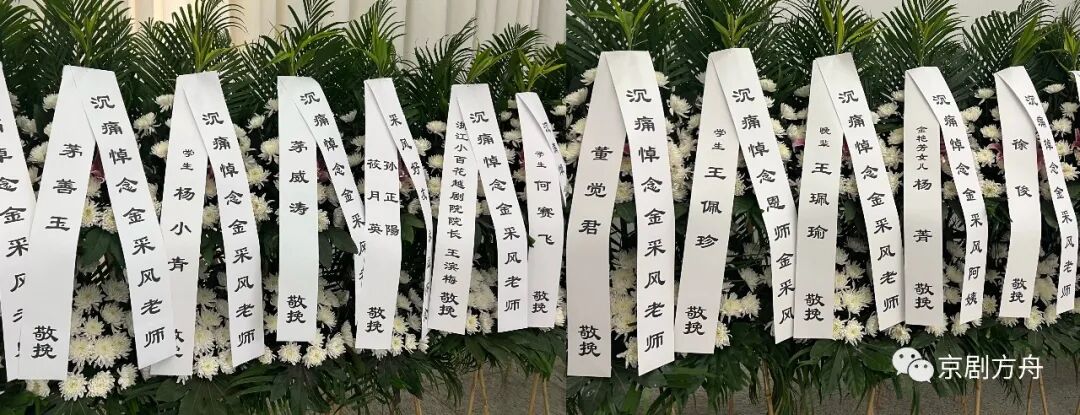 沉痛悼念金采风
茅善玉 敬挽
沉痛悼念金采风老师
学生 杨小青 敬挽
沉痛悼念金采风老师
茅威涛 敬挽
沉痛悼念金采风
筱月英 孙正陽 敬挽
采风好
浙江小百花越剧院院长 王滨梅 敬挽
沉痛悼念金采风老师
学生 何赛飞 敬挽
董觉君 敬挽
沉痛悼念金采风老师
学生 王佩珍 敬挽
沉痛悼念恩师金采风
晚辈 王珮瑜 敬挽
沉痛悼念金采风老师
金艳芳女儿 杨菁 敬挽
沉痛悼念金采风阿姨
徐俊 敬挽
沉痛悼念金采风老师
京剧方舟